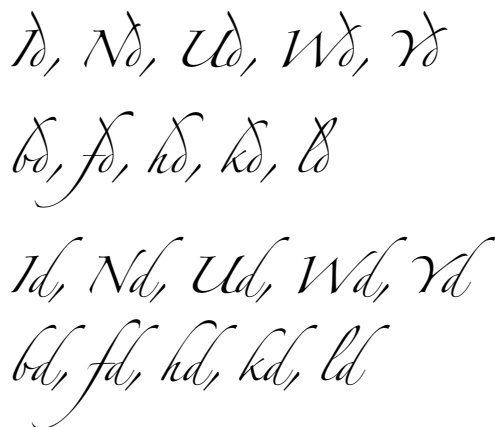 Id, Nd, Ud, Wd, Yd
bd, fd, hd, kd, ld
Id, Nd, Ud, Wd, Yd
bd, fd, hd, kd, ld